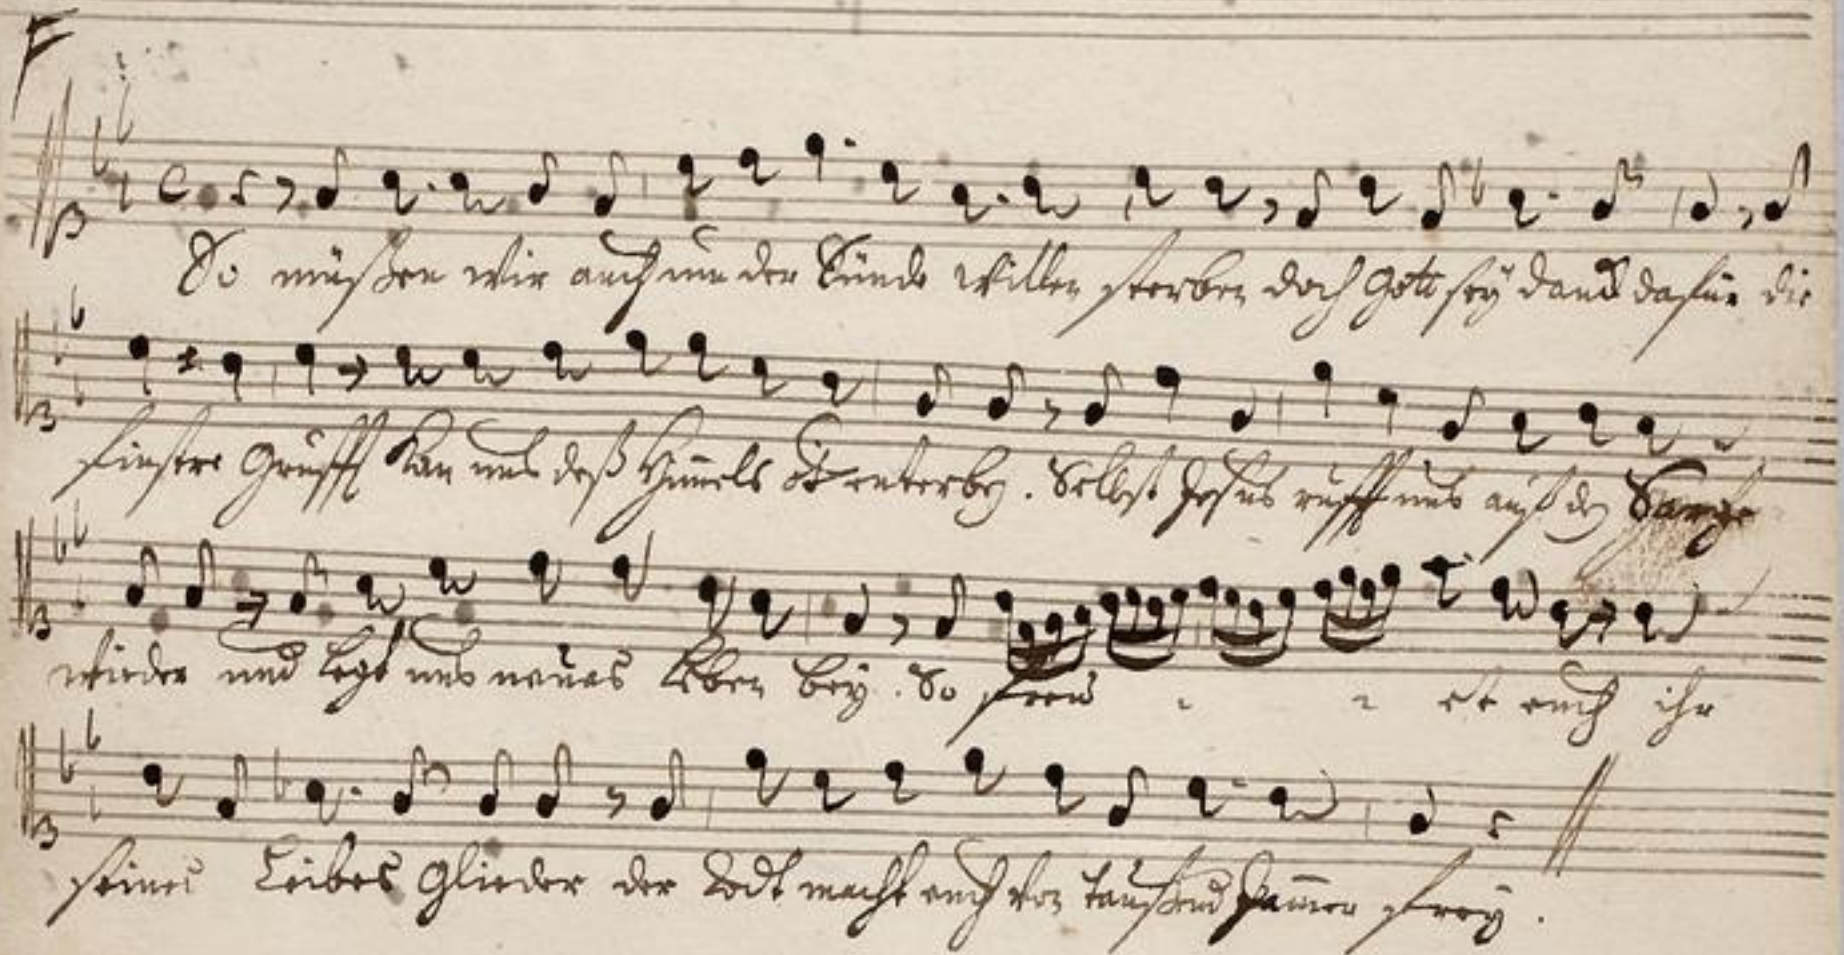 So müßen wir auch um der Sünde willen sterben doch Gott sey danck dafür die
finstre Grufft kan uns deß Himels nicht enterben. Selbst Jesus rufft uns auß den Sarge
wieder und legt uns neues Leben bey. So freu - - et euch ihr
seines Leibes Glieder der Todt macht euch von taußend Jamer frey.